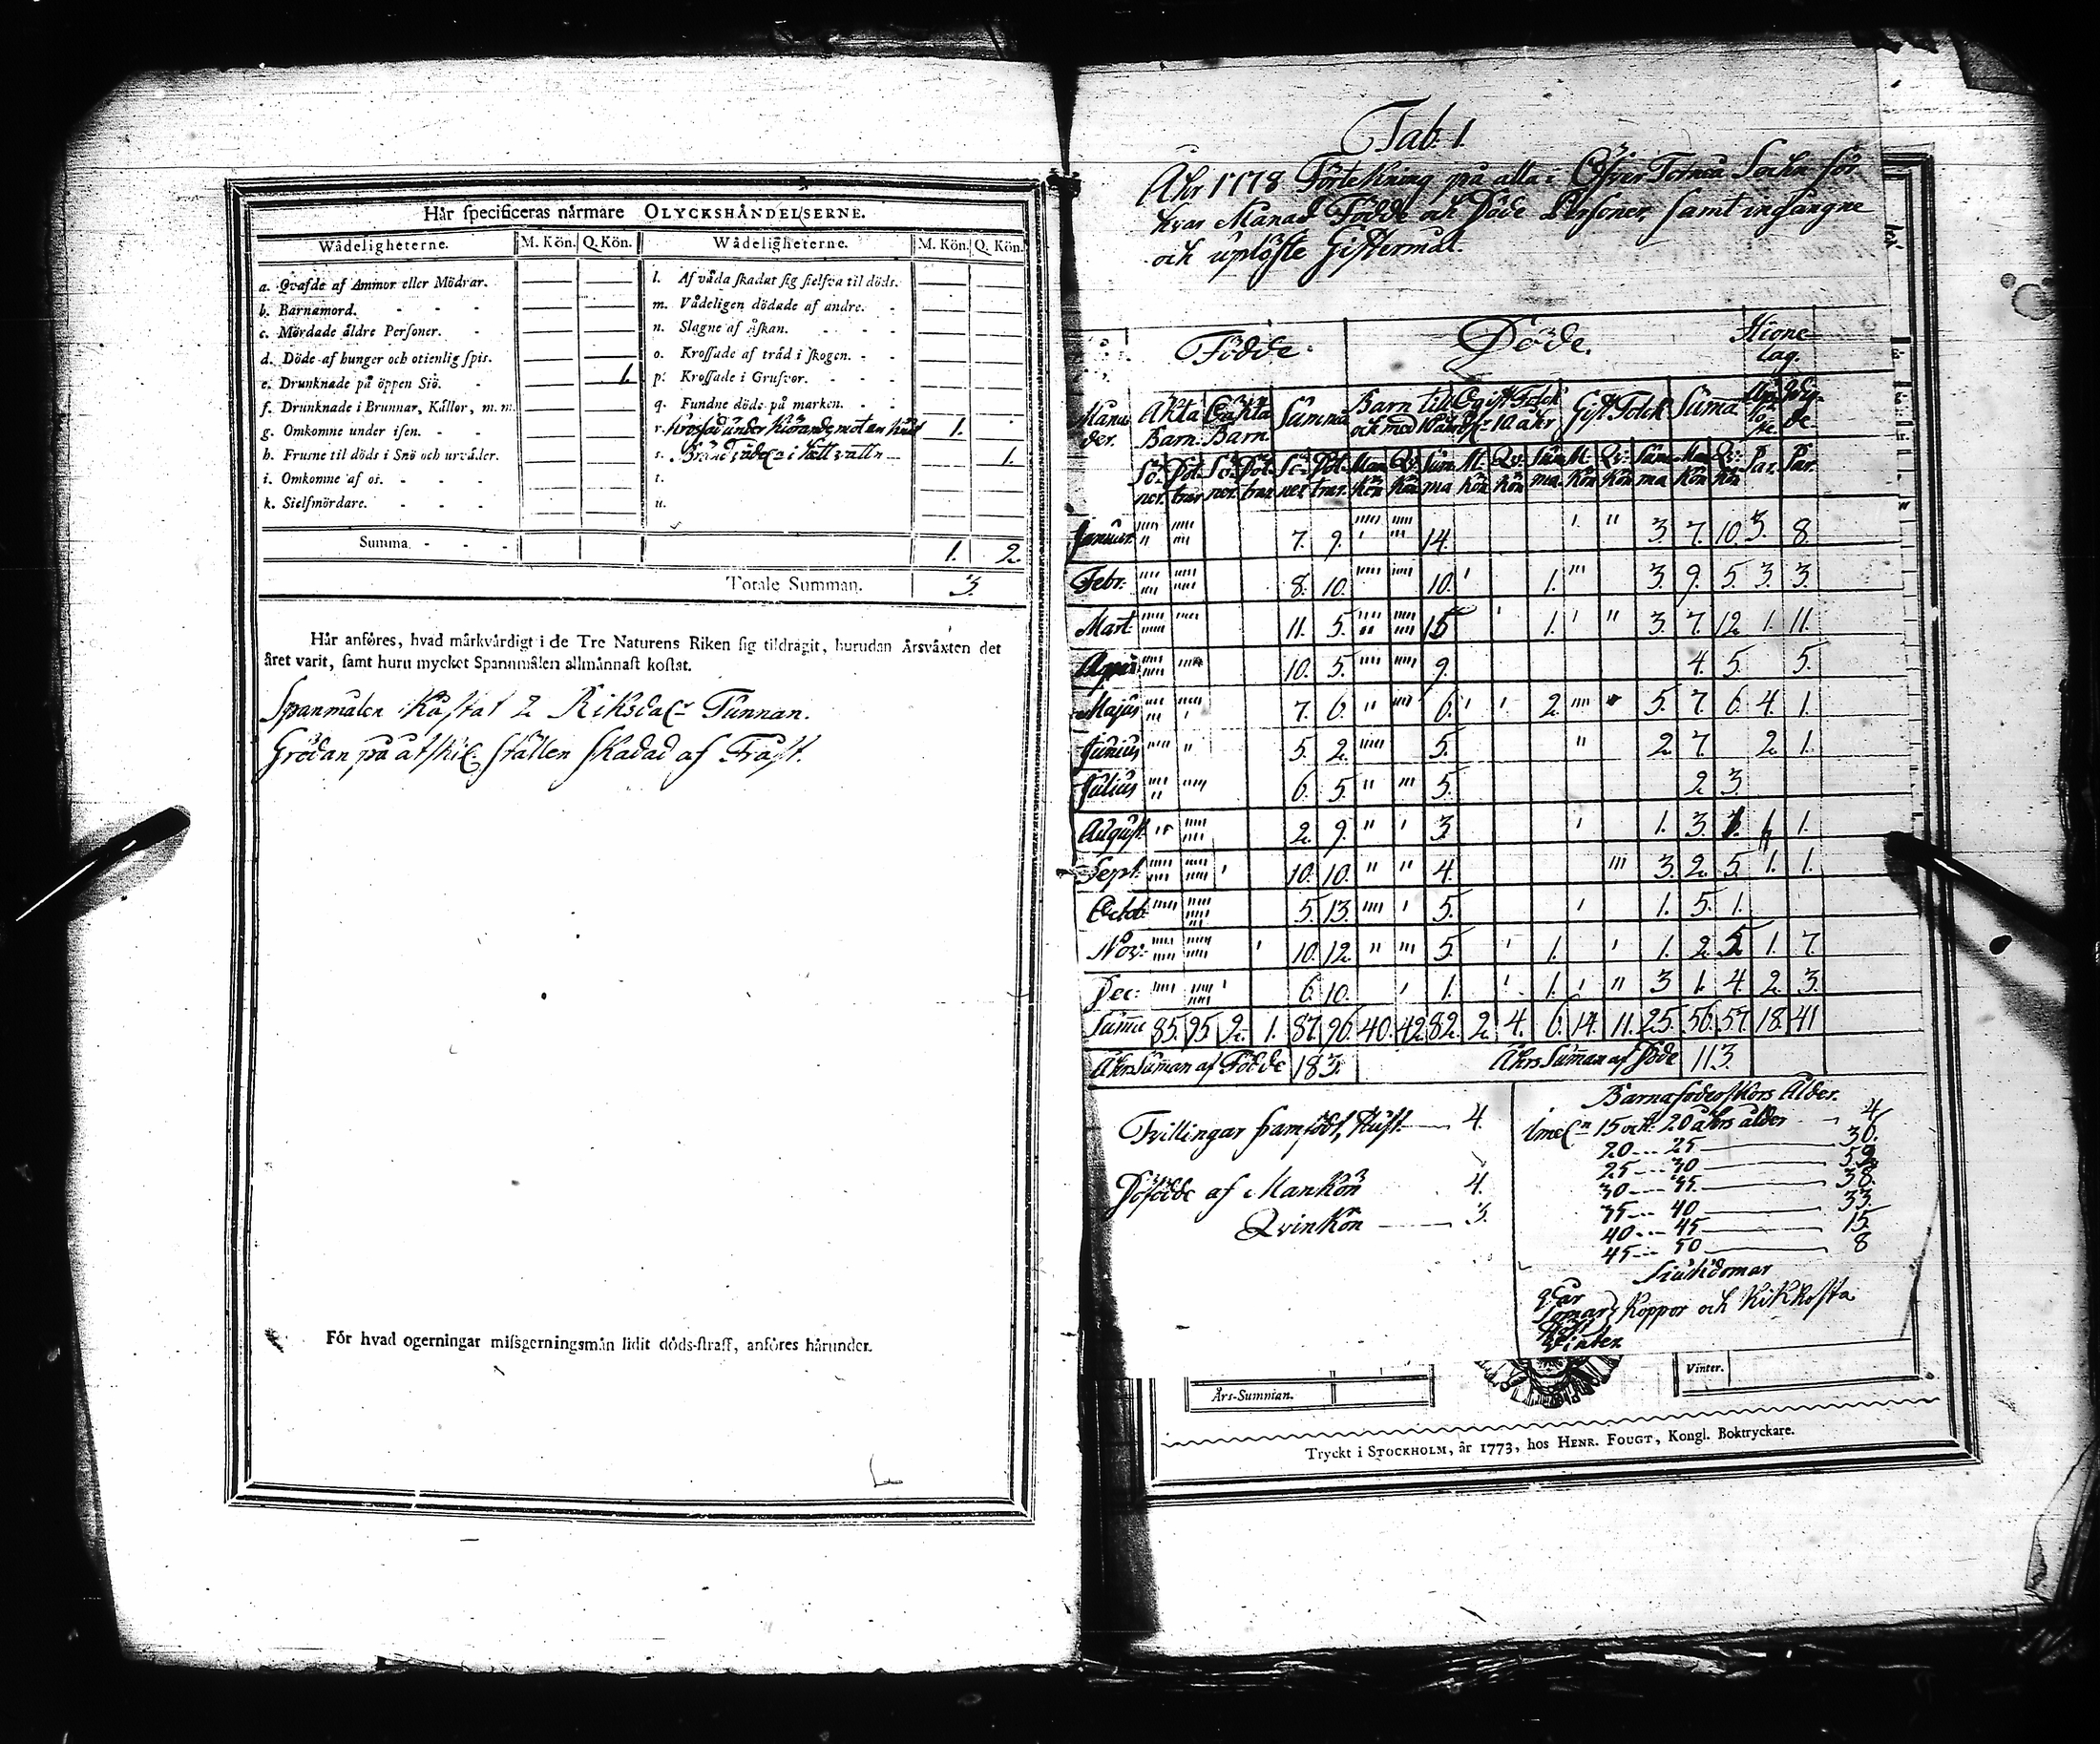 Här specificeras närmare OLYCKSHÄNDELSERNE.
Wådeligheterne. M. Kön. Q. Kön. Wådeligheterne. M. Kön. Q. Kön.
a. Qvafde af Ammor eller Mödrar. l. Af våda skadat sig sielfva til döds.
b. Barnamord. m. Vådeligen dödade af andre.
c. Mördade äldre Personer. n. Slagne af Åskan.
d. Döde af hunger och otienlig spis. o. Krossade af träd i skogen.
e. Drunknade på öppen Siö. 1. p. Krossade i Grufvor.
f. Drunknade i Brunnar, Källor, m. m. q. Fundne döde på marken.
g. Omkomne under isen. r. under kiörande mot en 1.
h. Frusne til döds i Snö och urväder. s. i hett vatten 1.
i. Omkomne af os. t.
k. Sielfmördare. u.
Summa 1. 2.
Totale Summan. 3.
Här anföres, hvad märkvärdigt i de Tre Naturens Riken sig tildragit, hurudan Årsväxten det
året varit, samt huru mycket Spannmålen allmännast kostat.
Spanmålen Kåstat 2 Riksdalr Tunnan.
Grödan på åtskil. ställen skadad af Fråst.
För hvad ogerningar missgerningsmän lidit döds-straff, anföres härunder.
Tab. 1.
Åhr 1778 Förtekning på alla i Öfver Torneå Sochn för
hvar Månad Födde och Döde Personer, samt ingångne
och uplöste Giftermål.
Födde. Döde. Hione
lag.
Måna
der. Äkta
Barn. Oäkta
Barn. Summa Barn till
och med 10 åhr Ogift Folck
öfr 10 åhr Gift Folck Suma
Januar. 7. 9. 14. 3 7. 10. 3. 8.
Febr. 8. 10. 10. 1. 3. 9. 5. 3. 3.
Mart. 11. 5. 15 1. 3. 7. 12. 1. 11.
April 10. 5. 9. 4. 5. 5.
Majus 7. 6. 6. 2. 5. 7 6. 4. 1.
Junius 5. 2. 5. 2. 7. 2. 1.
Julius 6. 5. 5. 2 3.
August. 2. 9. 3. 1. 3. 1. 1.
Sept. 10. 10. 4. 3. 2. 5. 1. 1.
Octob 5. 13. 5. 1. 5. 1.
Nov: 10. 12. 5. 1. 1. 2. 5 1. 7.
Dec: 6. 10. 1. 1. 3 1. 4. 2. 3.
Suma 85. 95 2. 1. 87. 96. 40. 42. 82. 2. 4. 6. 14. 11. 25. 56. 57. 18. 41
Åhrs Suman af Födde 183. Åhrs Suman af Döde 113.
Tvillingar framfödt, Hust. 4.
Döfödde af Mankön 4.
Qvinkön 3.
Barnaföderskors Ålder.
imeln 15 och 20 åhrs ålder 4
20 --- 25 30.
25 --- 30 59
30 --- 35. 38.
35 --- 40 33.
40 --- 45 15.
45 --- 50 8
Siukdomar
Vår
Somar Koppor och Kikhosta
Höst
Vinter
Års-Summan. Vinter.
Tryckt i STOCKHOLM, år 1773, hos HENR. FOUGT, Kongl. Boktryckare.